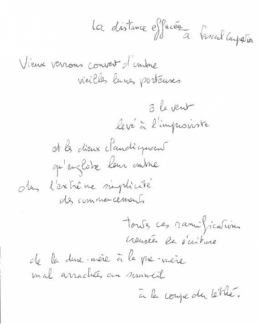 La distance effacée
à Pascal
Vieux verrous couvert d'ombre
vieilles lunes porteuses
le vent
levé à l'improviste
et les dieux
qu'englobe leur ombre
dans l'extrême simplicité
des commencements
toutes ces ramifications
creusées
de la dure-mère à la pie-mère
mal arrachées au sommeil
à la coupe du Léthé.